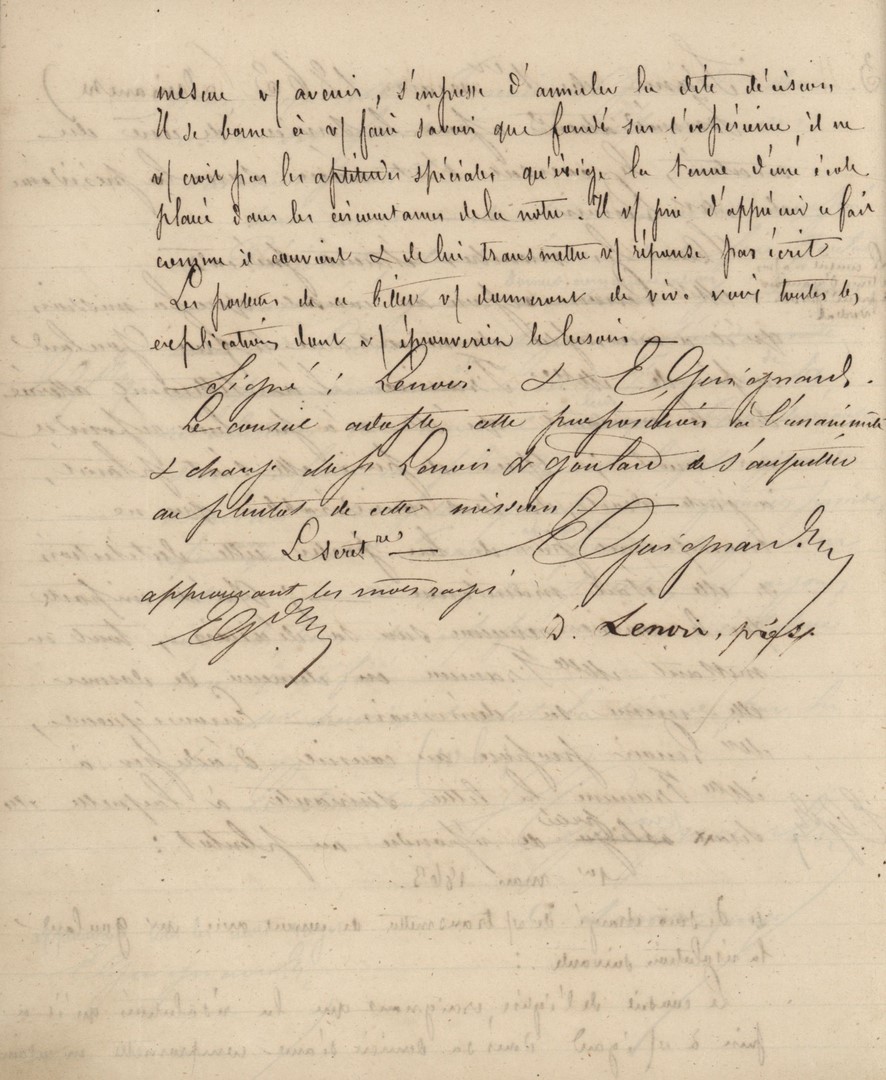 mesure v/ avenir, s'empresse d'annuler la dite décision.
Il se borne à v/ faire savoir que fondé sur l'expérience, il ne
v/ croit pas les aptitudes spéciales qu'exige la tenue d'une école
placée dans les circonstances de la notre. Il v/ prie d'apprécier ce fait
comme il convient & de lui transmettre v/ réponse par écrit
Les porteurs de ce billet v/ donneront de vive voix toutes les
explications dont v/ éprouveriez le besoin.
Signé : Lenoir & E Guignard.
Le conseil adopte cette proposition à l'unanimité
& charge Lenoir & Goulard de s'acquitter
au plutot de cette mission
Le Secrét re E Guignard
approuvant les mots rayés
EG
D. Lenoir, prést